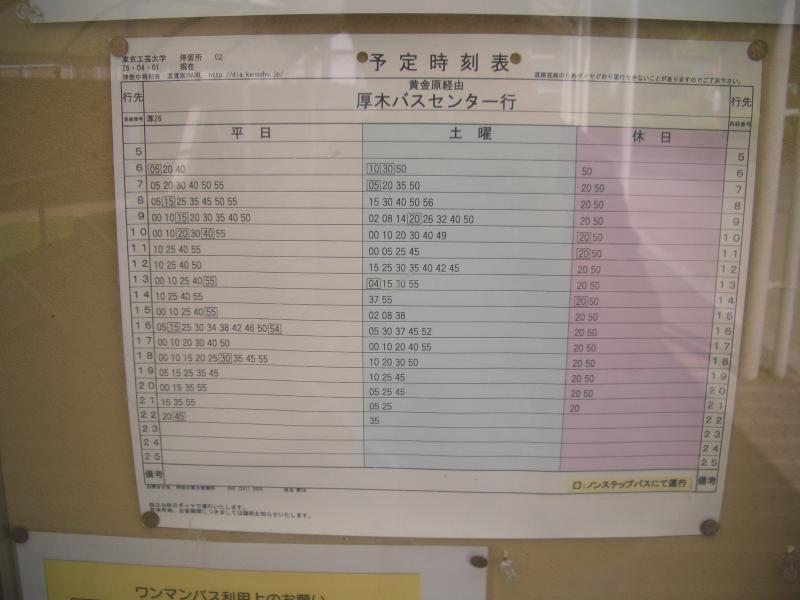 東京工芸大学 停留所 02
26-04-01 現在
神奈中時刻表・運賃案内URL http://dia.kanachu.jp/
予定時刻表
道路混雑のためダイヤどおり運行できないことがありますのでご了承下さい。
行先 黄金原経由 行先
厚木バスセンター行
系統番号 厚26 系統番号
平日 土曜 休日
5 5
6 05 20 40 10 30 50 50 6
7 05 20 30 40 50 55 05 20 35 50 20 50 7
8 05 15 25 35 45 50 55 15 30 40 50 56 20 50 8
9 00 10 15 20 30 35 40 50 02 08 14 20 26 32 40 50 20 50 9
10 00 10 20 30 40 55 00 10 20 30 40 49 20 50 10
11 10 25 40 55 00 05 25 45 20 50 11
12 10 25 40 50 15 25 30 35 40 42 45 20 50 12
13 00 10 25 40 55 04 15 30 55 20 50 13
14 10 25 40 55 37 55 20 50 14
15 00 10 25 40 55 02 08 38 20 50 15
16 05 15 25 30 34 38 42 46 50 54 05 30 37 45 52 20 50 16
17 00 10 20 30 40 50 00 10 20 40 55 20 50 17
18 00 10 15 20 25 30 35 45 55 10 20 30 50 20 50 18
19 05 15 25 35 45 10 25 45 20 50 19
20 00 15 35 55 05 25 45 20 50 20
21 15 35 55 05 25 20 21
22 20 45 35 22
23 23
24 24
25 25
備考 □:ノンステップバスにて運行 備考
祝日は休日ダイヤで運行いたします。
年末年始、お盆期間につきましては随時お知らせいたします。
ワンマンバス利用上のお願い